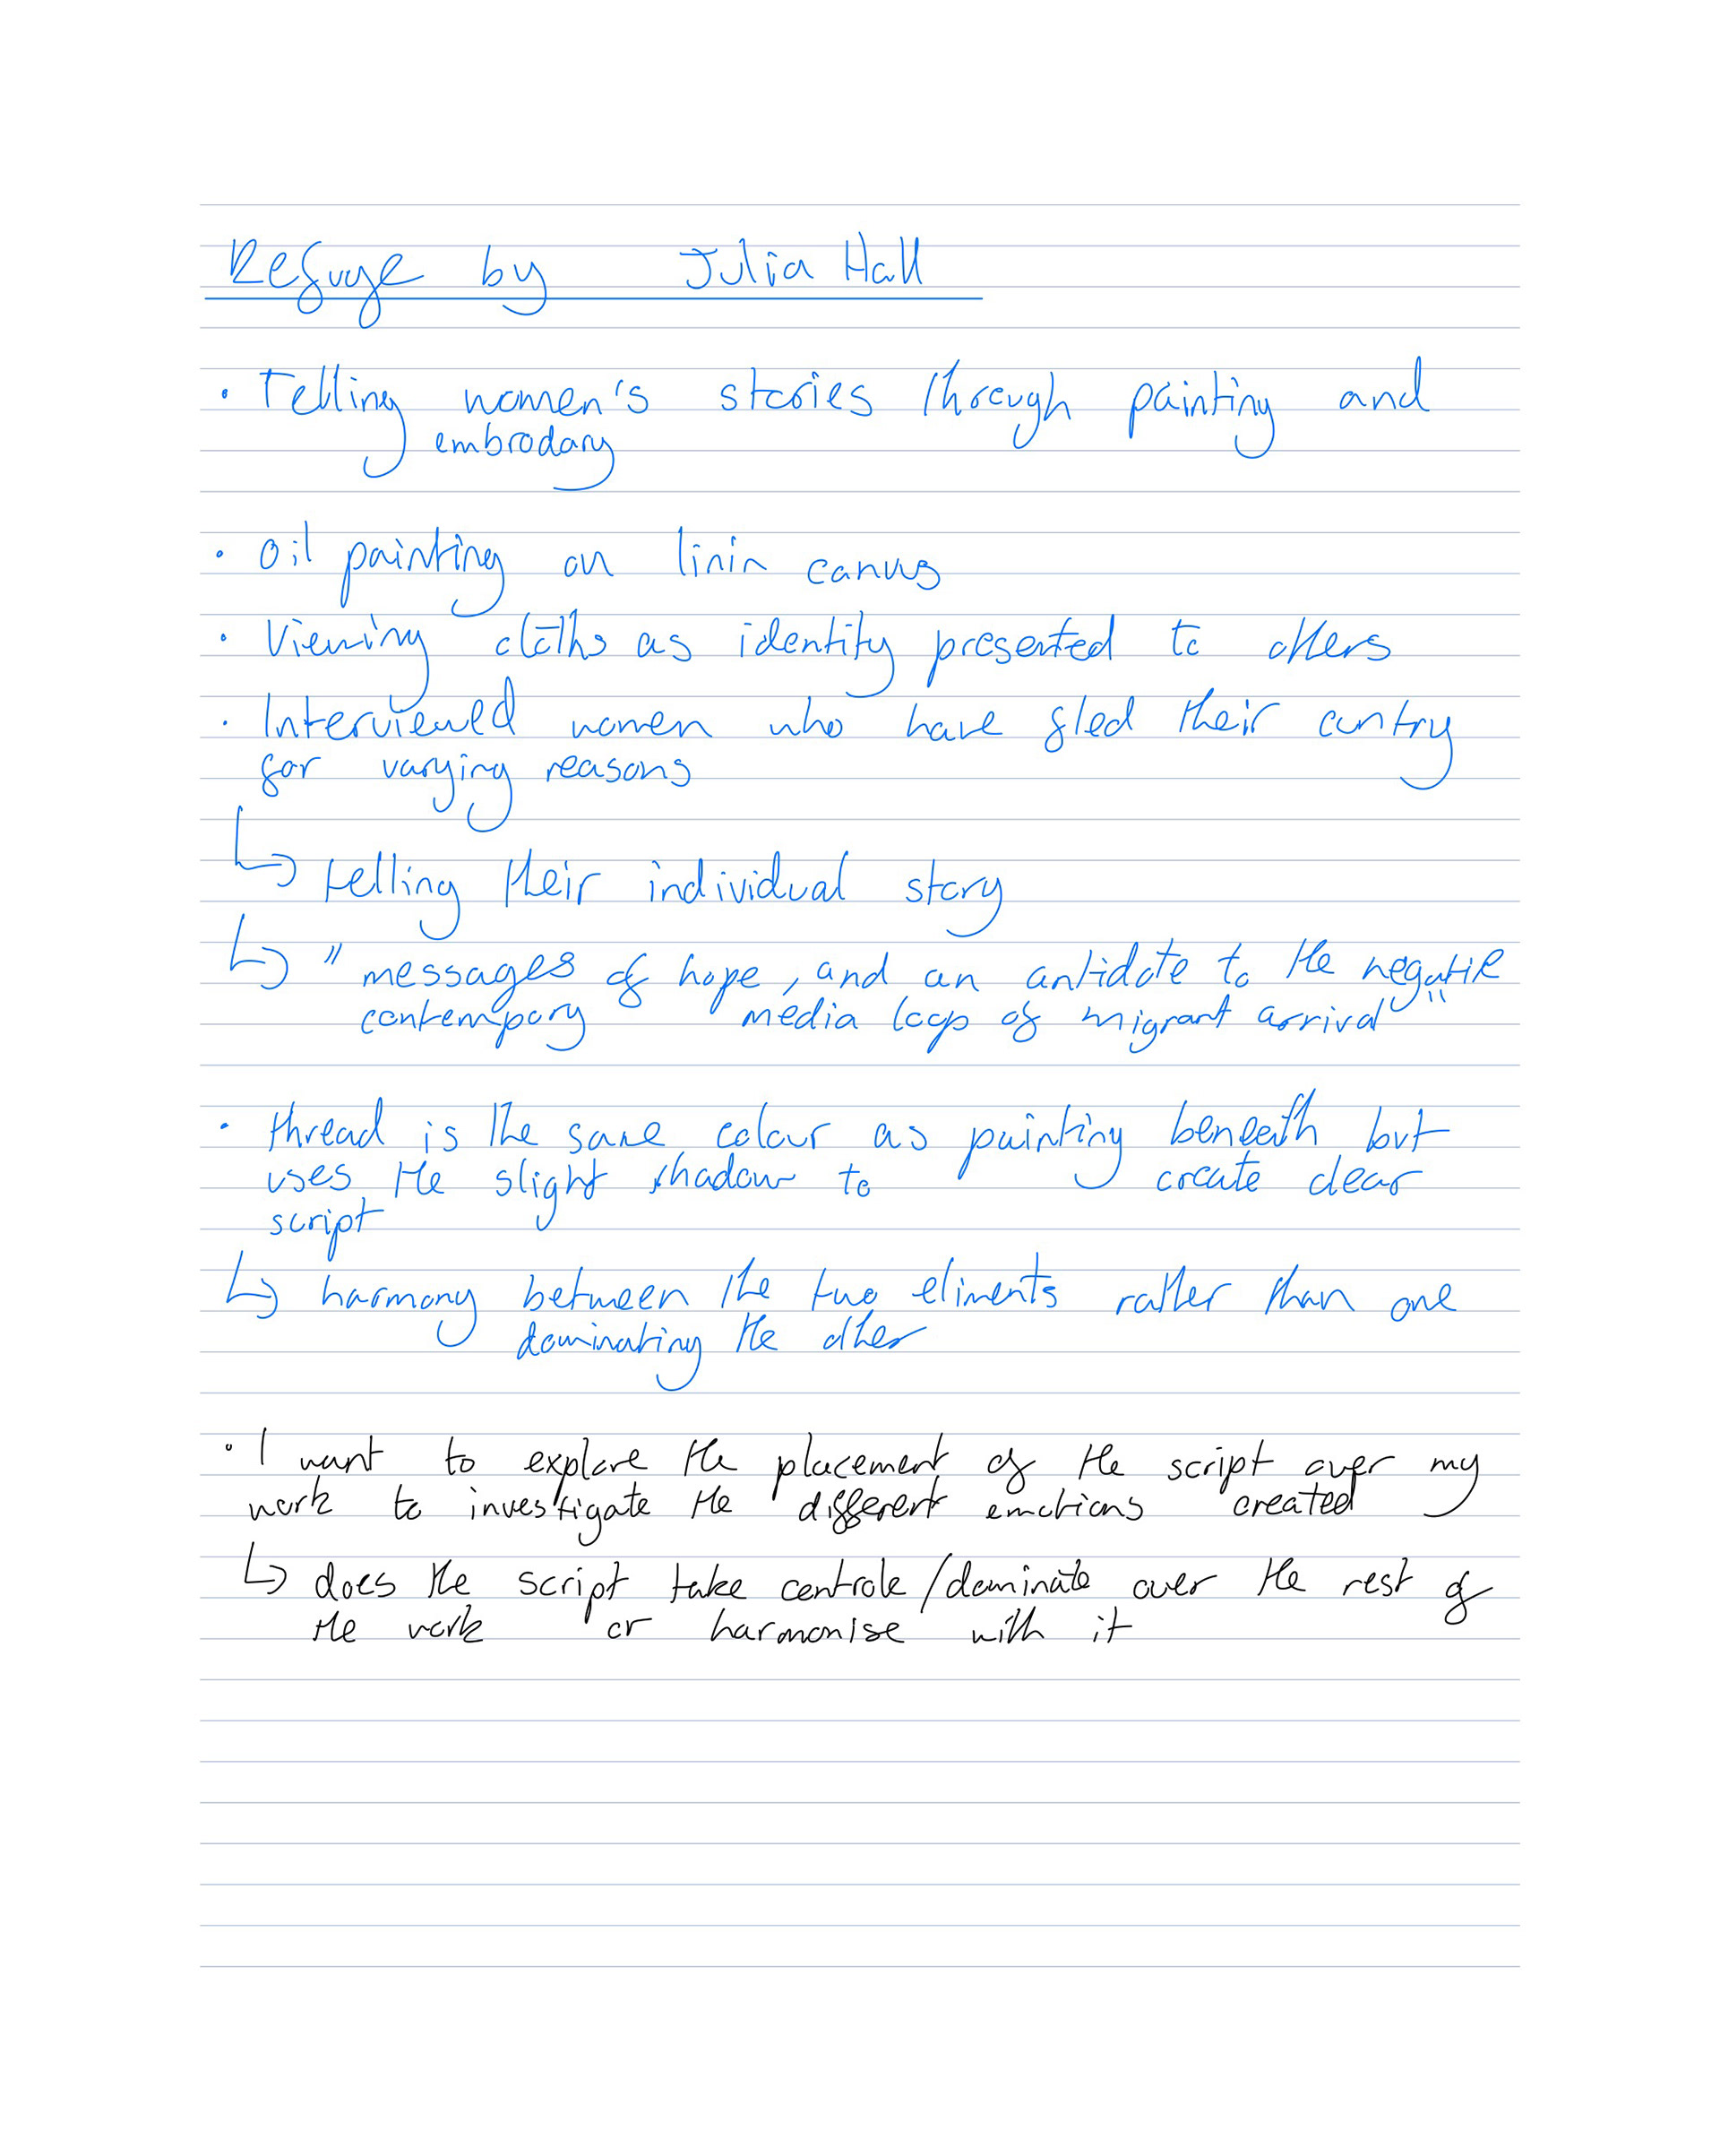 Refuge by Julia Hall
• Telling women's stories through painting and
embrodary
• Oil painting on linin canvus
• Viewing cloths as identity presented to others
• Interviewed women who have fled their cuntry
for varying reasons
↳ telling their individual story
↳ "messages of hope, and an antidote to the negative
contempory media loop of migrant arrival"
• thread is the same colour as painting beneath but
uses the slight shadow to create clear
script
↳ harmony between the two eliments rather than one
dominating the other
• I want to explore the placement of the script over my
work to investigate the different emotions created
↳ does the script take controle/dominate over the rest of
the work or harmonise with it